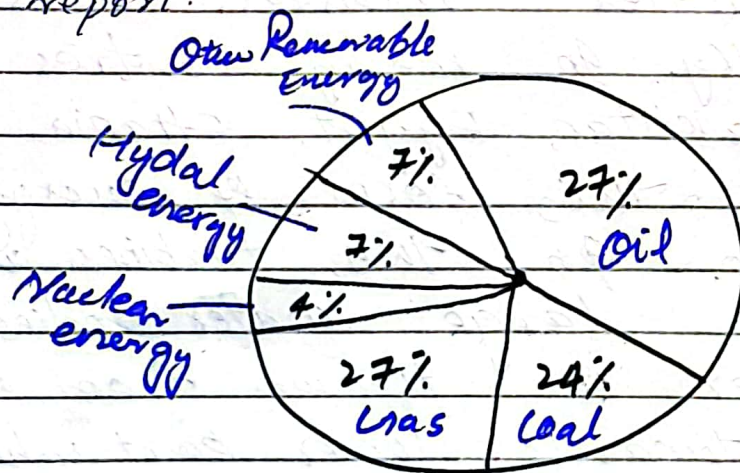 Report.
Other Renewable
Energy
7%
27%
Oil
Hydal
energy
7%
Nuclear
energy
4%
27%
Gas
24%
Coal